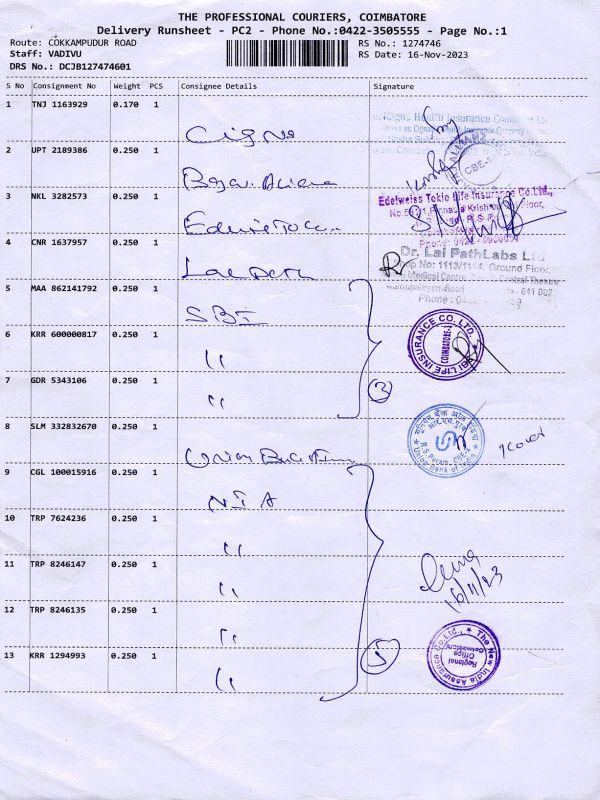 THE PROFESSIONAL COURIERS, COIMBATORE
Delivery Runsheet - PC2 - Phone No.:0422-3505555 - Page No.:1
Route: COKKAMPUDUR ROAD
RS No.: 1274746
Staff: VADIVU
RS Date: 16-Nov-2023
DRS No.: DCJB127474601
S No Consignment No Weight PCS Consignee Details Signature
1 TNJ 1163929 0.170 1 Cigna
2 UPT 2189386 0.250 1
3 NKL 3282573 0.250 1
Edelweiss Tokio Life Insurance Co.Ltd.,
4 CNR 1637957 0.250 1
Dr. Lal PathLabs Ltd
Shop No: 1113/1114, Ground Floor,
Medical Centre
Central Theatre
641 002
Phone :
5 MAA 862141792 0.250 1 SBI
SBI LIFE INSURANCE CO. LTD.
COIMBATORE
6 KRR 600000817 0.250 1 "
7 GDR 5343106 0.250 1 "
3
8 SLM 332832670 0.250 1
यूनियन बैंक ऑफ इंडिया
R.S Puram, CBE-2
Union Bank of India
1 cover
9 CGL 100015916 0.250 1 NIA
10 TRP 7624236 0.250 1 "
11 TRP 8246147 0.250 1 "
16/11/23
12 TRP 8246135 0.250 1 "
13 KRR 1294993 0.250 1 "
5
The New India Assurance Co.Ltd.,
Regional
Office
Coimbatore